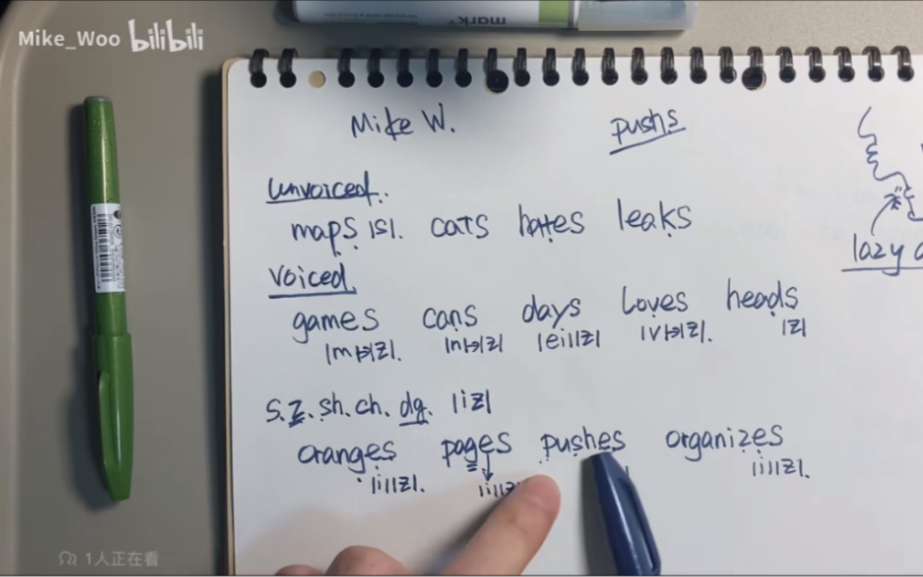 mark
Mike_Woo bilibili
Mike W. pushs
unvoiced.
maps |s|. cats hates leaks
lazy
voiced
games cans days loves heads
|m|→|z|. |n|→|z| |ei||z| |v|→|z|. |z|
s.z.sh.ch.dg. |iz|
oranges pages pushes organizes
|i||z|. |i||z| |i||z|.
1人正在看